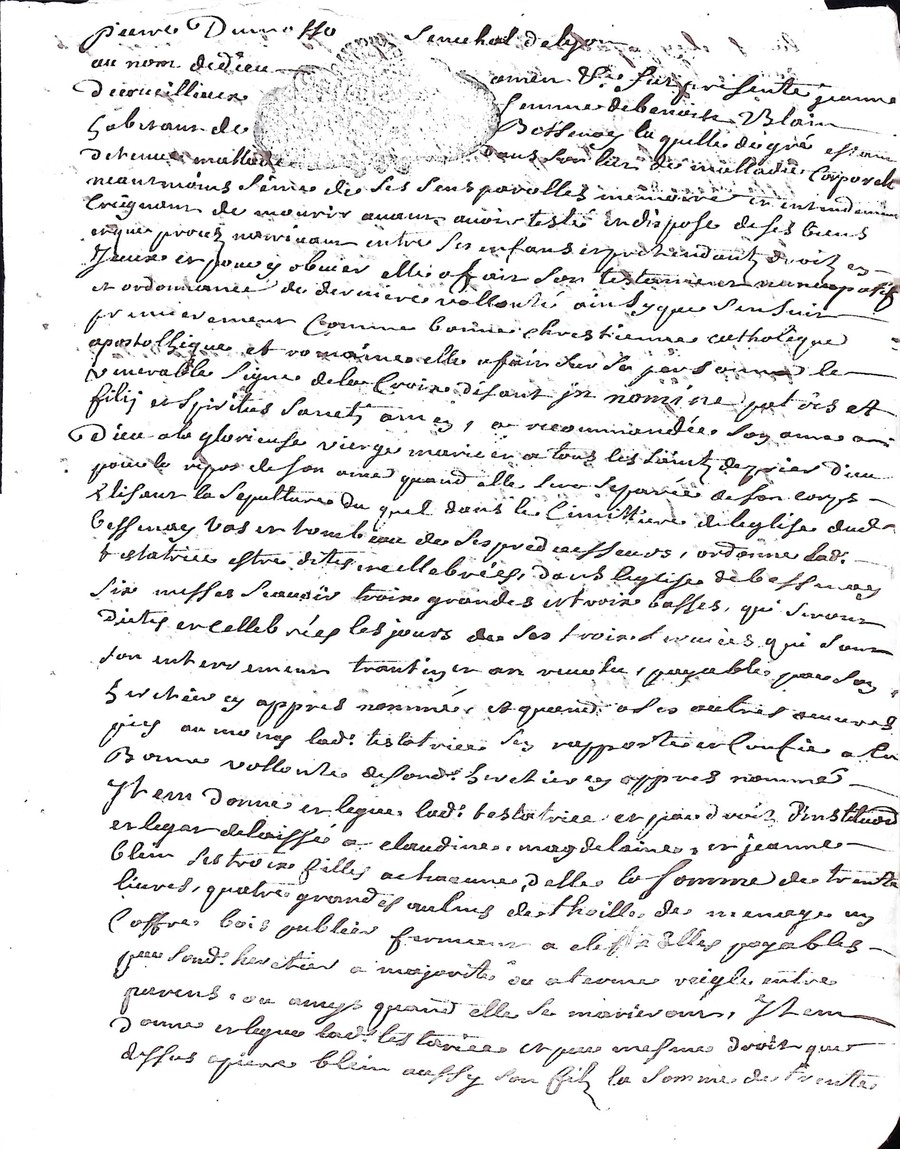 pierre Dumosso Senechal de lyon
au nom de dieu amen &a fut presente jeanne
Decrullieux femme de benoist Blain
habitant de Bessenay laquelle de gré estant
detenue mallade dans son lit de malladie corporele
neantmoins sème de ses sens parolles memoire et entendement
Creignant de mourir avant avoir testé et dispose de ses biens
et que procès n'arrivant entre ses enfans et prethendantz droitz en
Yceux et pour y obvier elle a fait son testament nuncupatif
et ordonnance de derniere vollonté ainsy que sensuit
premierement comme bonne chrestienne catholique
apostollique et romaine elle a fait sur sa personne le
venerable signe de la Croix disant jn nomine patris et
filij et spiritus sancti amen, a recommandée son ame a
Dieu a la glorieuse vierge marie et a tous les saintz de prier dieu
pour le repos de son ame quand elle sera separée de son corps
Elisant la sepulture du quel dans le Cimittiere de leglise dud.
bessenay vas et tombeau de ses predecesseurs, ordonne lad.
testatrice estre dites et cellebrées, dans leglise de bessenay
six messes scavoir troix grandes et troix basses, qui seront
Dittes et cellebrées les jours de ses troix services qui sont
son enterrement trantin et an revolu, payables par son
heritier cy appres nommé, et quand a ses autres oeuvres
pies aumones lad. testatrice sen rapporte et Confie a la
Bonne vollonte de sond. heritier cy appres nommé
Ytem donne et legue lad. testatrice et par droit dinstitution
et legat delaissé a claudine, magdelaine, et jeanne
blein ses troix filles a chacune delle la somme de trente
livres, quatre grandes aulnes de thoille de menage un
Coffre bois publier fermant a clef a Elles payables
par sond. heritier a majorité ou a terme reiglé entre
parens, ou amys quand elle se marieront, Ytem
donne et legue lad. testatrice et par mesme droit que
dessus a piere blein aussy son filz la somme de trente